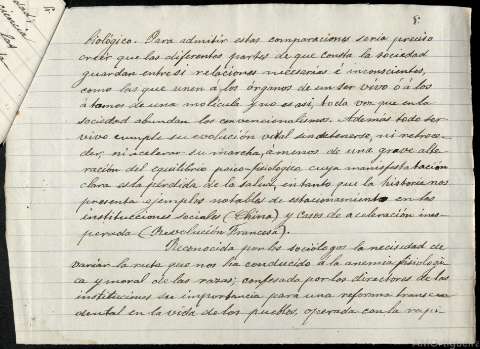 8.
biológico. Para admitir estas comparaciones seria preciso
creer que las diferentes partes de que consta la sociedad
guardan entre sí relaciones necesarias é inconscientes,
como las que unen á los órganos de un ser vivo ó á los
átomos de una molécula y no es así, toda vez que en la
sociedad abundan los convencionalismos. Además todo ser
vivo cumple su evolución vital sin detenerse, ni retroce-
der, ni acelerar su marcha, á menos de una grave alte-
ración del equilibrio psico-fisiológico, cuya manifestación
clara es la pérdida de la salud, en tanto que la historia nos
presenta ejemplos notables de estacionamiento en las
instituciones sociales (China) y casos de aceleración ines-
perada (Revolución Francesa).
Reconocida por los sociólogos la necesidad de
variar la ruta que nos ha conducido á la anemia fisiológi-
ca y moral de las razas; confesada por los directores de las
instituciones su importancia para una reforma trascen-
dental en la vida de los pueblos, operada con la rapi-